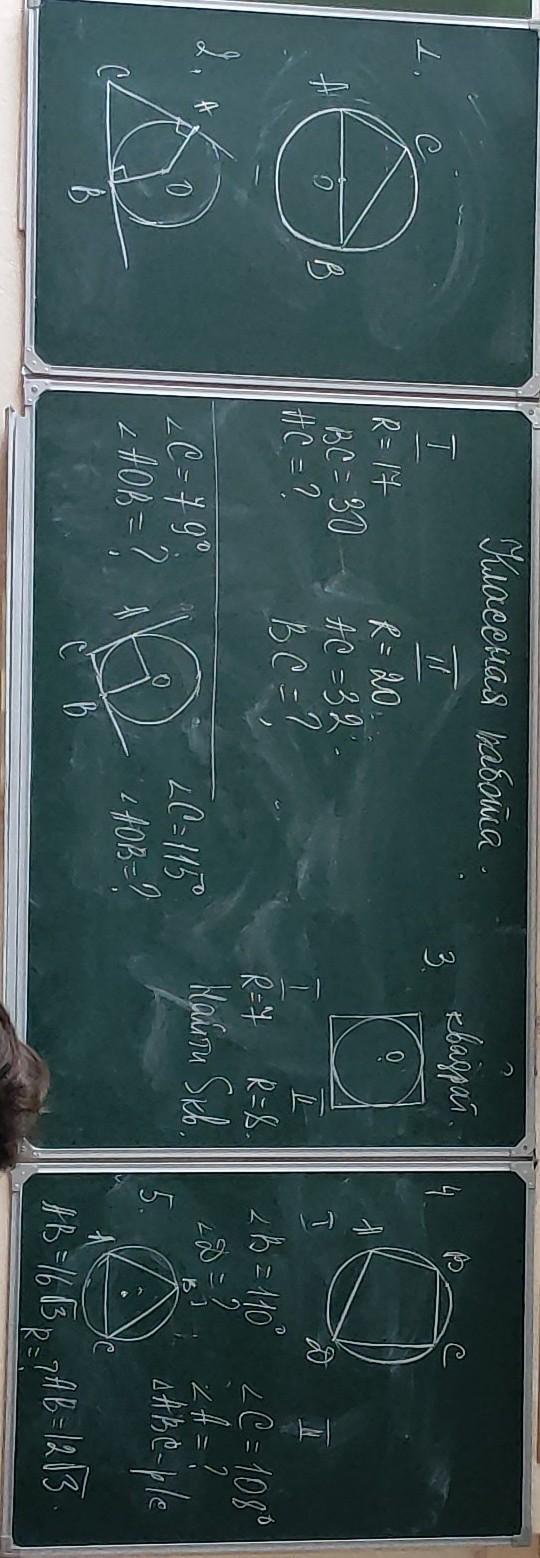 Классная работа.
1.
A
C
O
B
I
R=17
BC=30
AC=?
II
R=20
AC=32
BC=?
2.
C
A
O
B
∠C=79°
∠AOB=?
A
C
O
B
∠C=115°
∠AOB=?
3. квадрат.
O
I
R=7
II
R=8.
Найти Sкв.
4.
B
C
A
D
I
∠B=110°
∠D=?
II
∠C=108°
∠A=?
5.
A
B
C
△ABC-р/с
AB=16√3
R=?
AB=12√3.